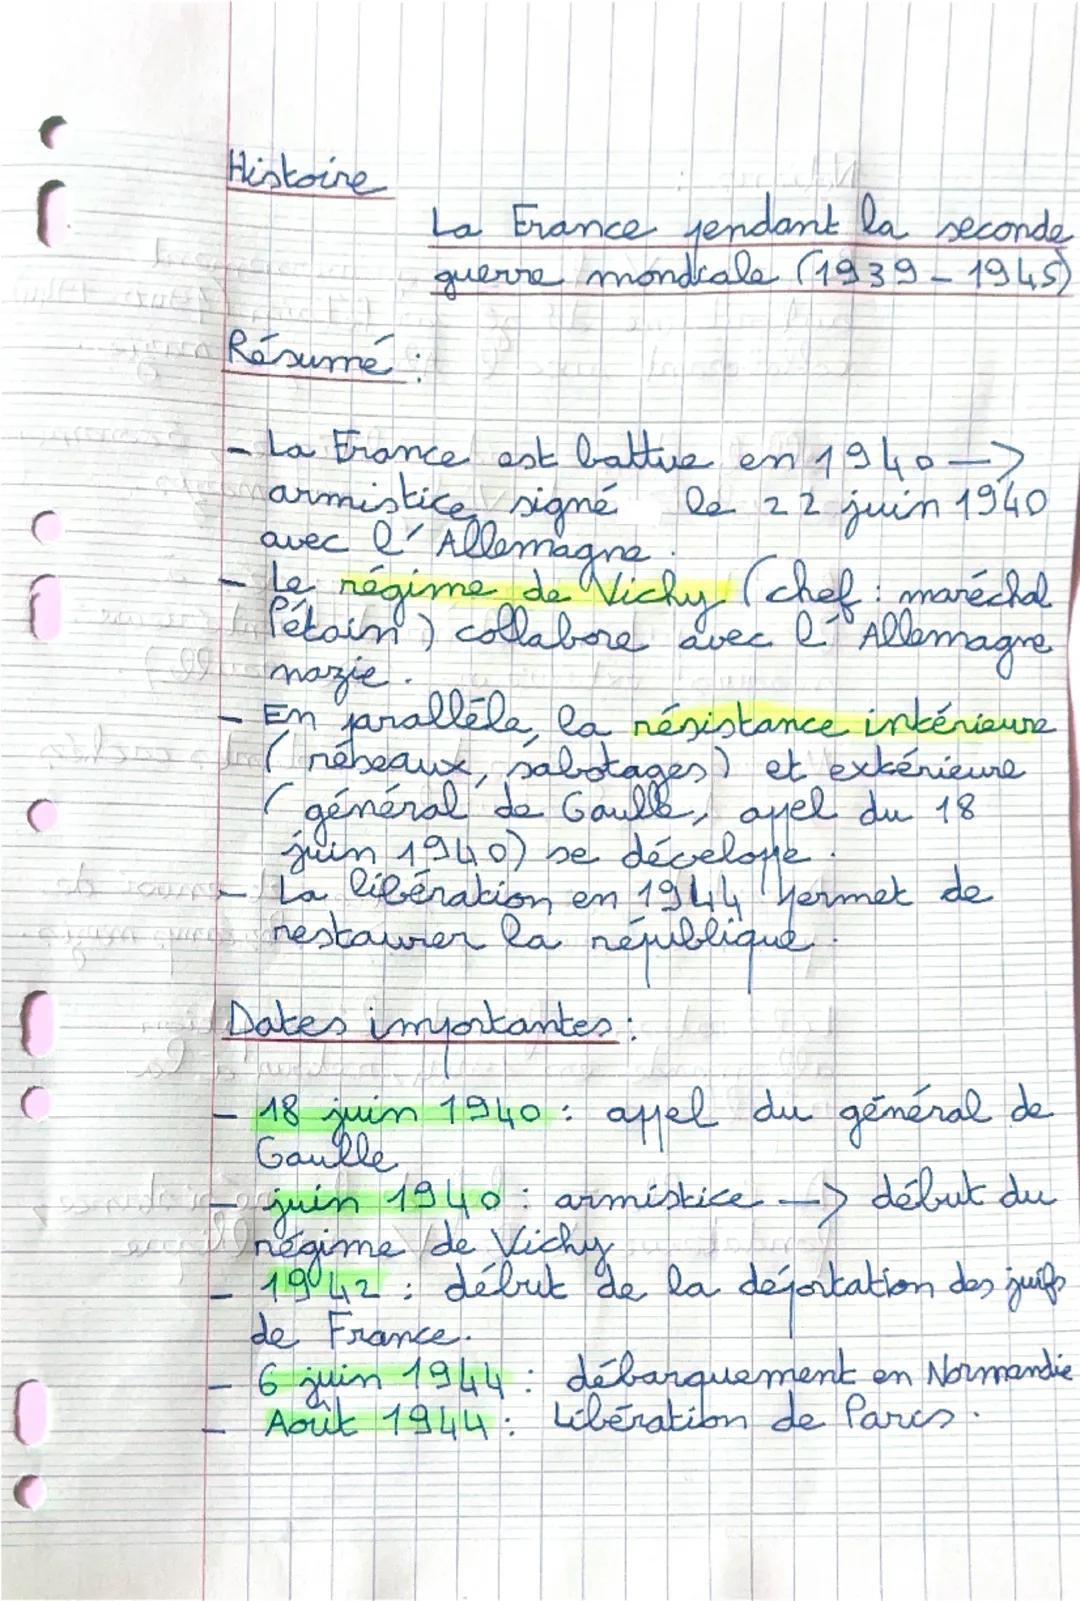 Histoire
La France pendant la seconde
guerre mondiale (1939-1945)
Résumé :
- La France est battue en 1940 ->
armistice signé le 22 juin 1940
avec l'Allemagne.
- Le régime de Vichy (chef : maréchal
Pétain) collabore avec l'Allemagne
nazie.
- En parallèle, la résistance intérieure
(réseaux, sabotages) et extérieure
(général de Gaulle, appel du 18
juin 1940) se développe.
- La libération en 1944 permet de
restaurer la république.
Dates importantes :
- 18 juin 1940 : appel du général de
Gaulle
- juin 1940 : armistice -> début du
régime de Vichy
- 1942 : début de la déportation des juifs
de France.
- 6 juin 1944 : débarquement en Normandie
- Août 1944 : Libération de Paris.